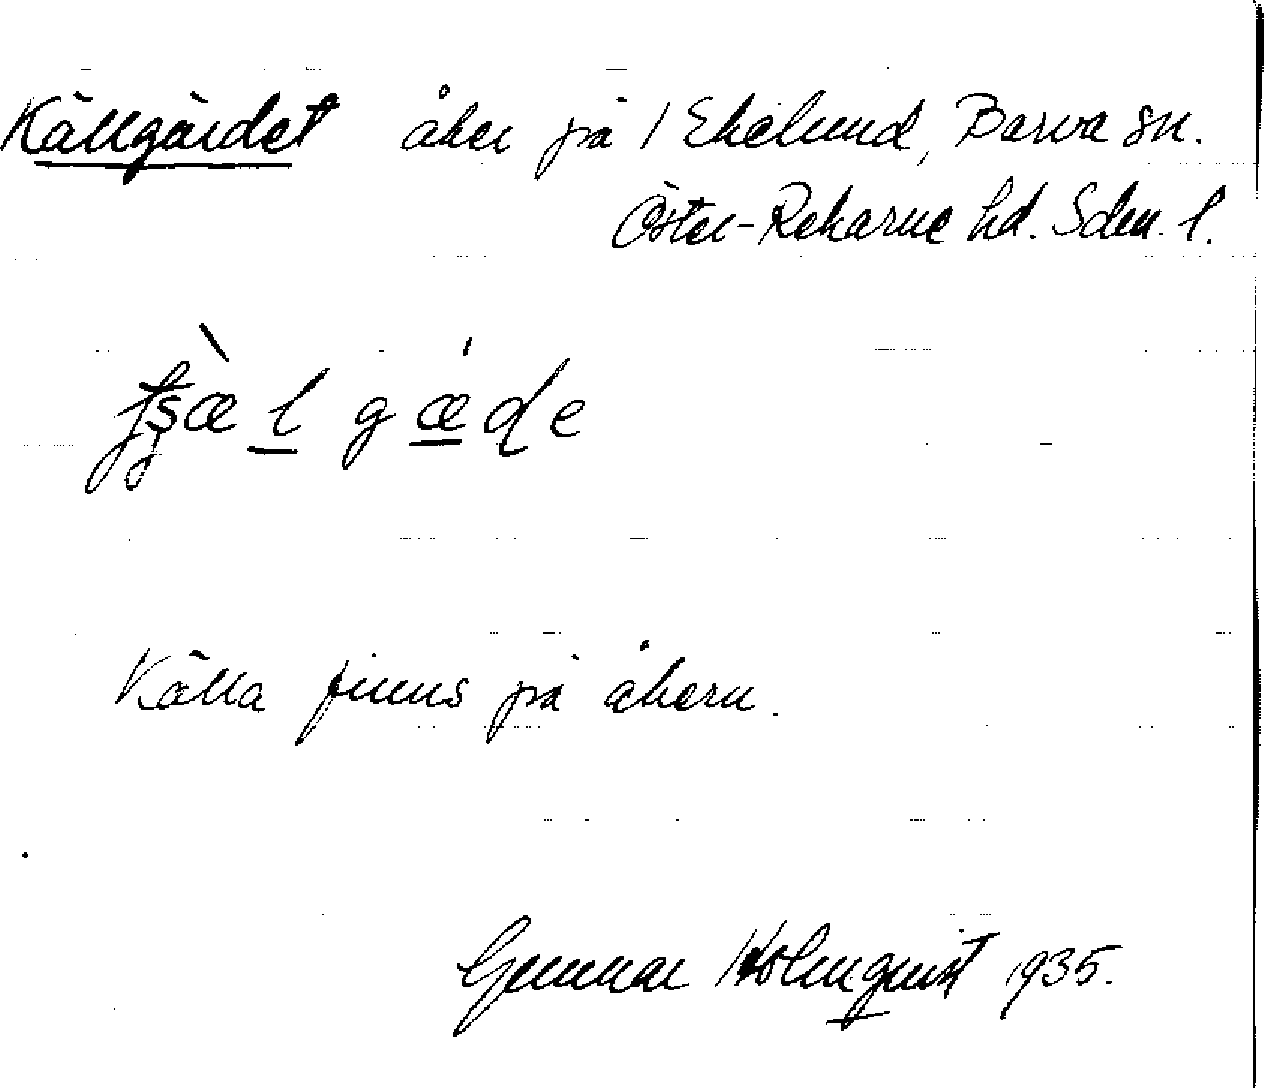 Källgärdet åker på 1 Ekelund, Barva sn.
Öster-Rekarne hd. Sdm. l.
Källa finns på åkern.
Gunnar Holmquist 1935.